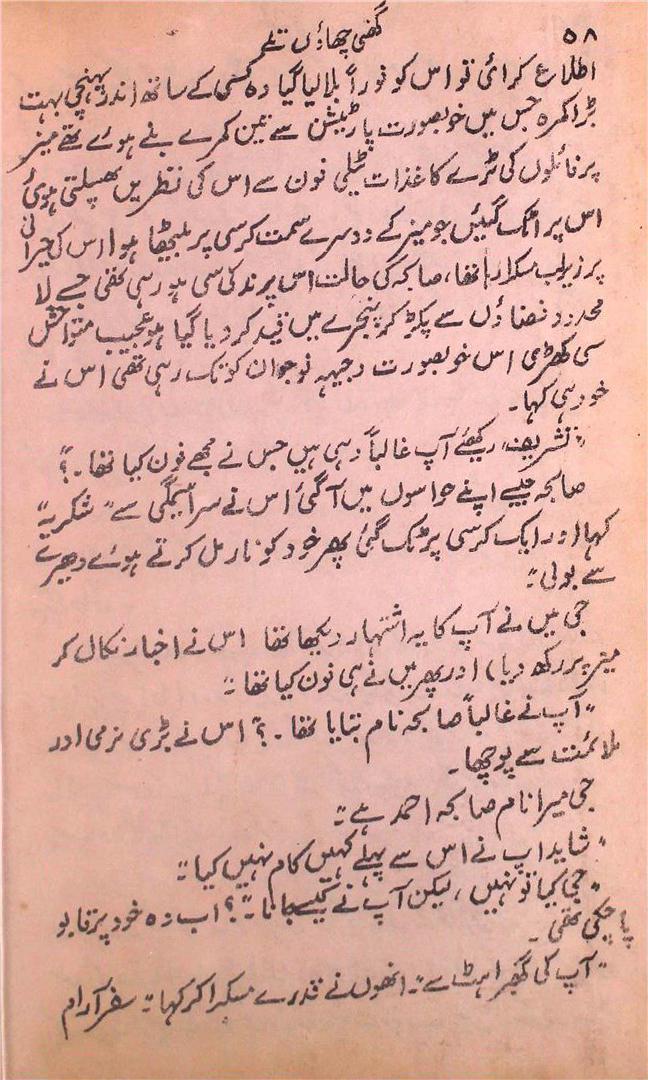 ۵۸
گھنی چھاؤں تلے
اطلاع کرائی تو اس کو فوراً بلا لیا گیا وہ کسی کے ساتھ اندر پہنچی بہت
بڑا کمرہ جس میں خوبصورت پارٹیشن سے تین کمرے بنے ہوئے تھے میز
پر فائلوں کی ٹرے کاغذات ٹیلی فون سے اس کی نظریں پھسلتی ہوئی
اس پر اٹک گئیں جو میز کے دوسرے سمت کرسی پر بیٹھا ہوا اس کی حیرانی
پر زیرلب مسکرا رہا تھا، صابحہ کی حالت اس پرندکی سی ہو رہی تھی جسے لا
محدود فضاؤں سے پکڑ کر پنجرے میں قید کر دیا گیا ہو عجیب متواحش
سی کھڑی اس خوبصورت وجیہہ نوجوان کو تک رہی تھی اس نے
خود ہی کہا۔
"تشریف رکھئے آپ غالباً وہی ہیں جس نے مجھے فون کیا تھا۔؟"
صابحہ جیسے اپنے حواسوں میں آ گئی اس نے سراسیمگی سے "شکریہ"
کہا اور ایک کرسی پر ٹک گئی پھر خود کو نارمل کرتے ہوئے دھیرے
سے بولی:"
جی میں نے آپ کا یہ اشتہار دیکھا تھا اس نے اخبار نکال کر
میز پر رکھ دیا) اور پھر میں نے ہی فون کیا تھا۔"
"آپ نے غالباً صابحہ نام بتایا تھا۔؟" اس نے بڑی نرمی اور
ملائمت سے پوچھا۔
جی میرا نام صابحہ احمد ہے۔"
"شاید اپ نے اس سے پہلے کہیں کام نہیں کیا۔"
"جی کیا تو نہیں، لیکن آپ نے کیسے جانا۔"؟ اب وہ خود پر قابو
پا چکی تھی۔
"آپ کی گھبراہٹ سے۔" انھوں نے قدرے مسکرا کر کہا۔" سفر آرام